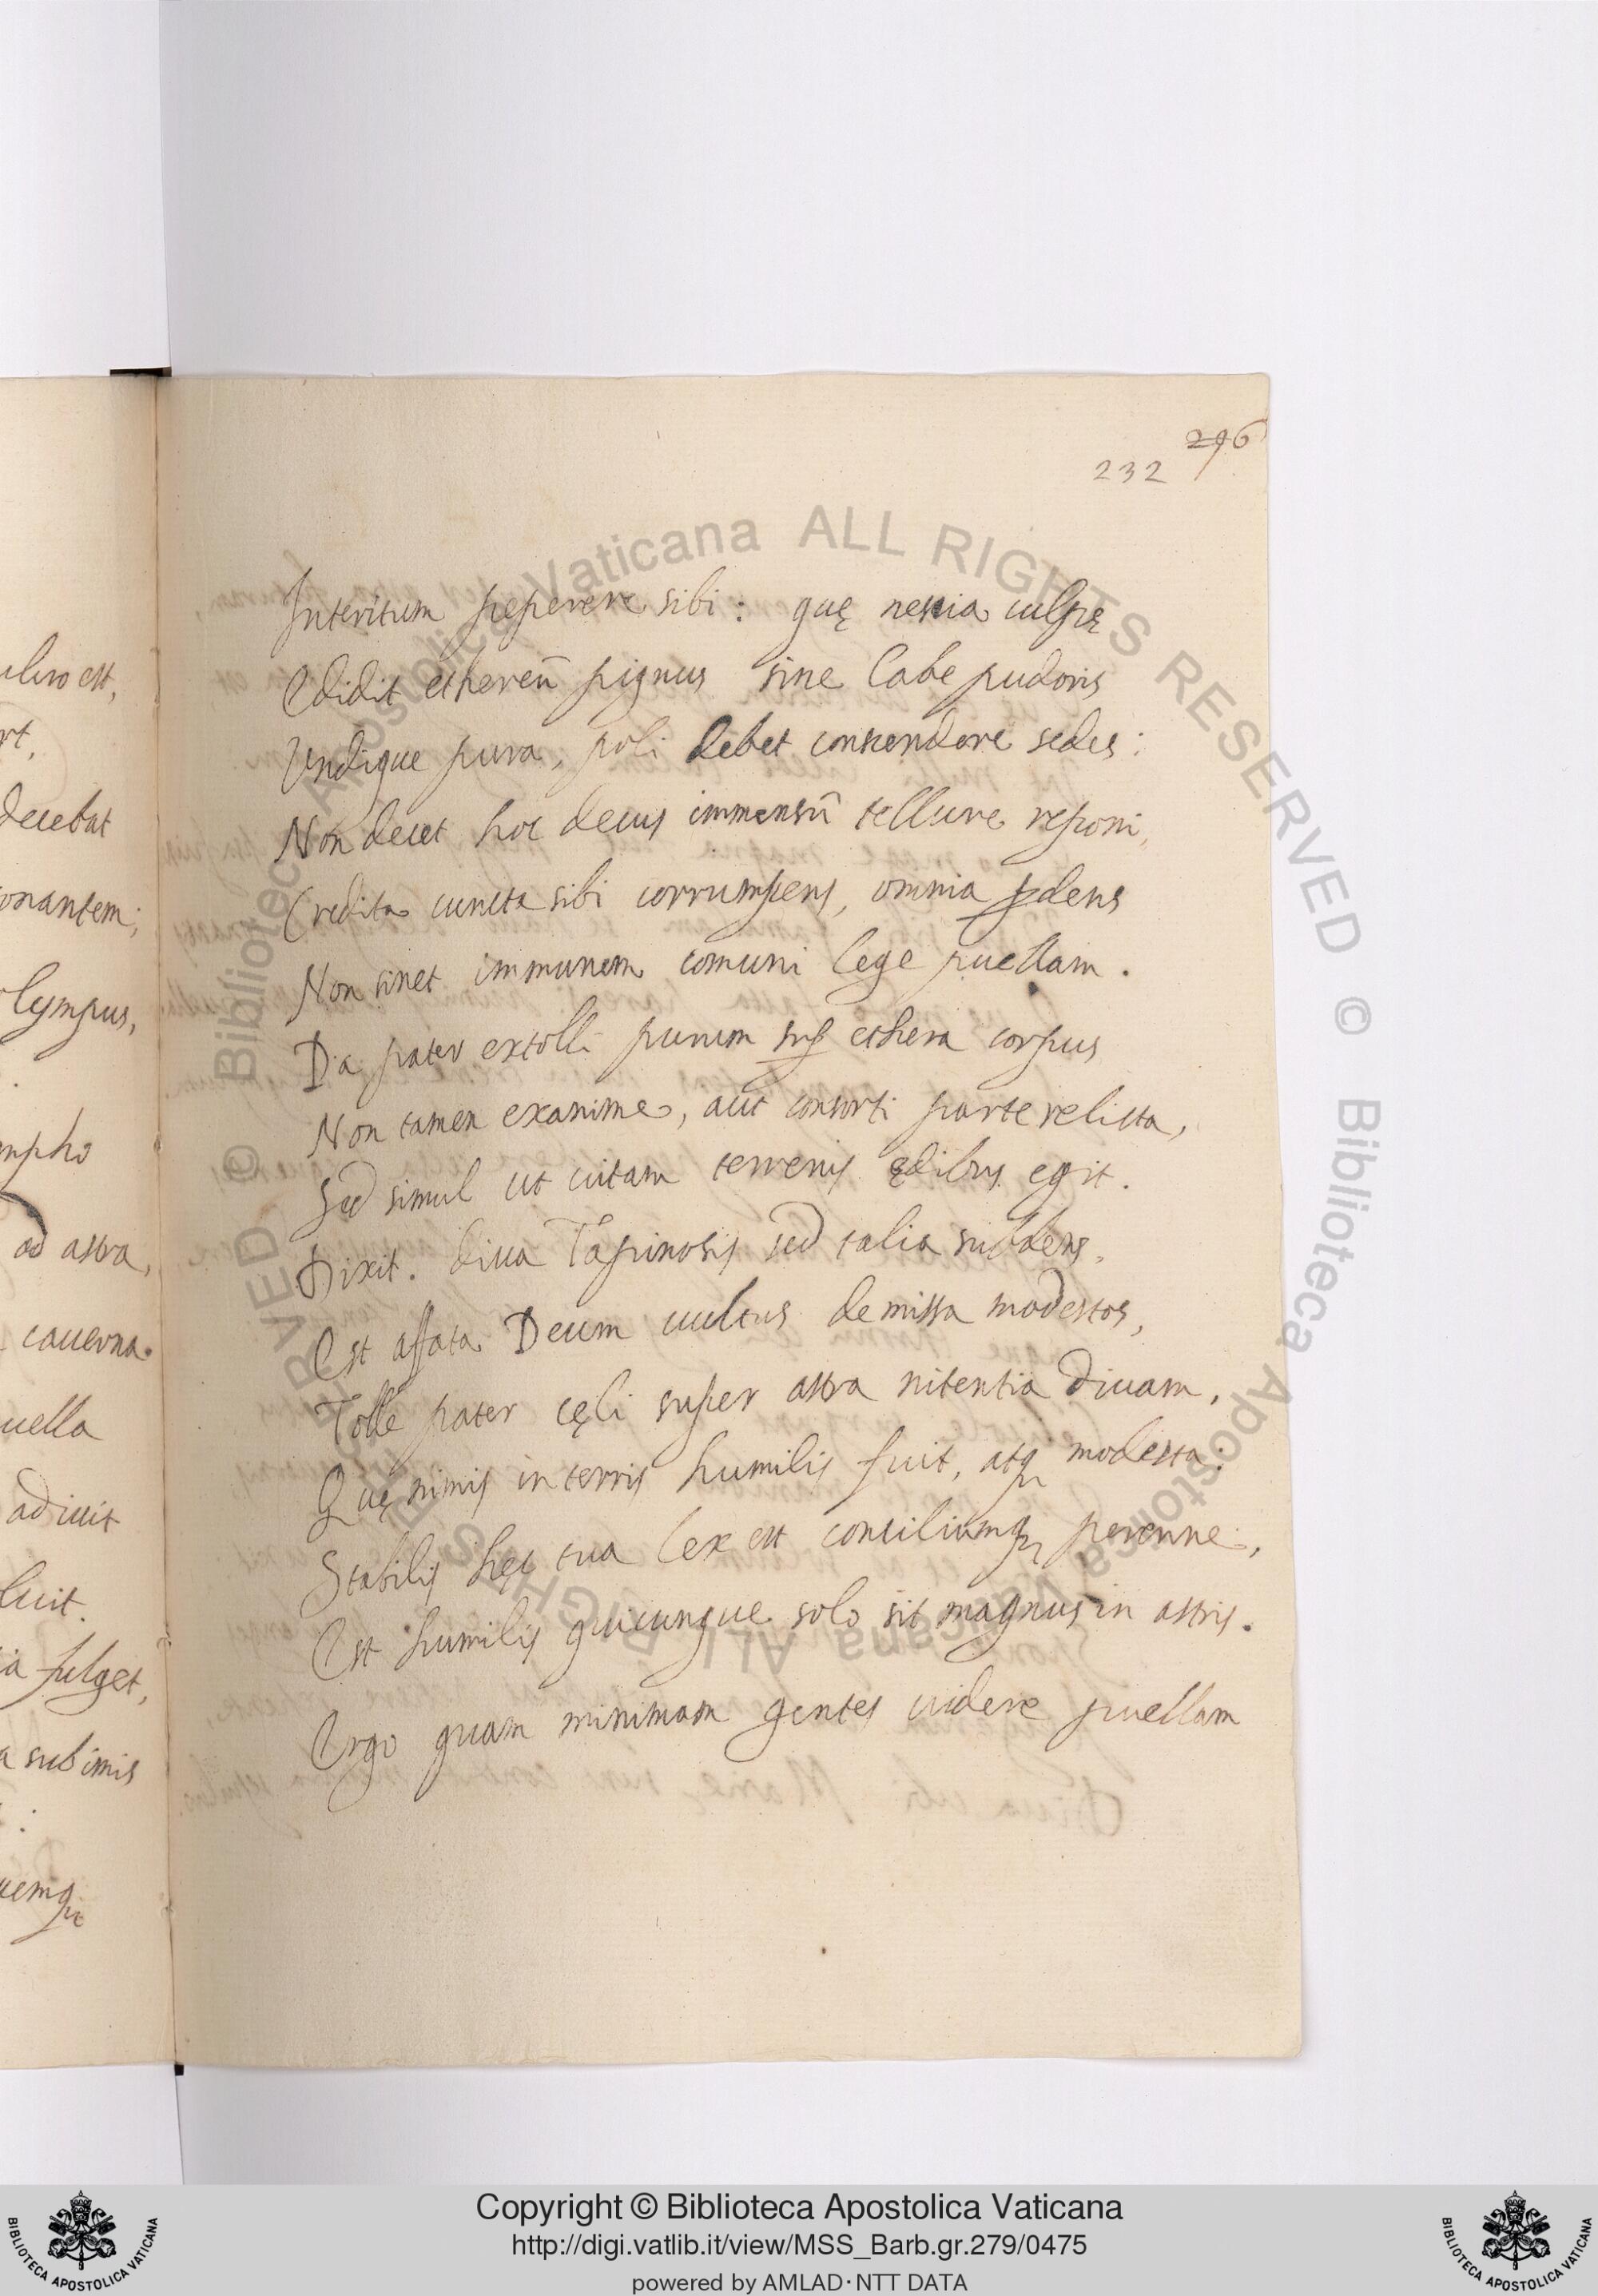 ulno est,
rt,
decebat
onantem;
lympus,
mpho
ad astra,
cauerna.
uella
adiuit
luit.
ia fulget,
a sub imis
:
uemq;
296
232
Interitum peperere sibi: quę nescia culpę
Edidit ethereū pignus sine labe pudoris
Vndique pura, poli debet conscendere sedes:
Non decet hoc decus immensū tellure reponi,
Credita cuncta sibi corrumpens, omnia ꝑdens
Non sinet immunem comuni lege puellam.
Da pater extolli purum suꝑ ethera corpus
Non tamen exanime, aut consorti parte relicta,
Sed simul ut uitam terrenis ędibus egit.
Dixit. diua Tapinosis sed talia subdens,
Est affata Deum uultus demissa modestos,
Tolle pater cęli super astra nitentia diuam,
Quę nimis in terris humilis fuit, atq; modesta:
Stabilis hęc tua lex est consiliumq; perenne,
Est humilis quicunque solo sit magnus in astris.
Ergo quam minimam gentes uidere puellam
© Biblioteca Apostolica Vaticana ALL RIGHTS RESERVED © Biblioteca Apostolica Vaticana ALL RIGHTS RESERVED
BIBLIOTECA APOSTOLICA VATICANA
Copyright © Biblioteca Apostolica Vaticana
http://digi.vatlib.it/view/MSS_Barb.gr.279/0475
powered by AMLAD·NTT DATA
BIBLIOTECA APOSTOLICA VATICANA